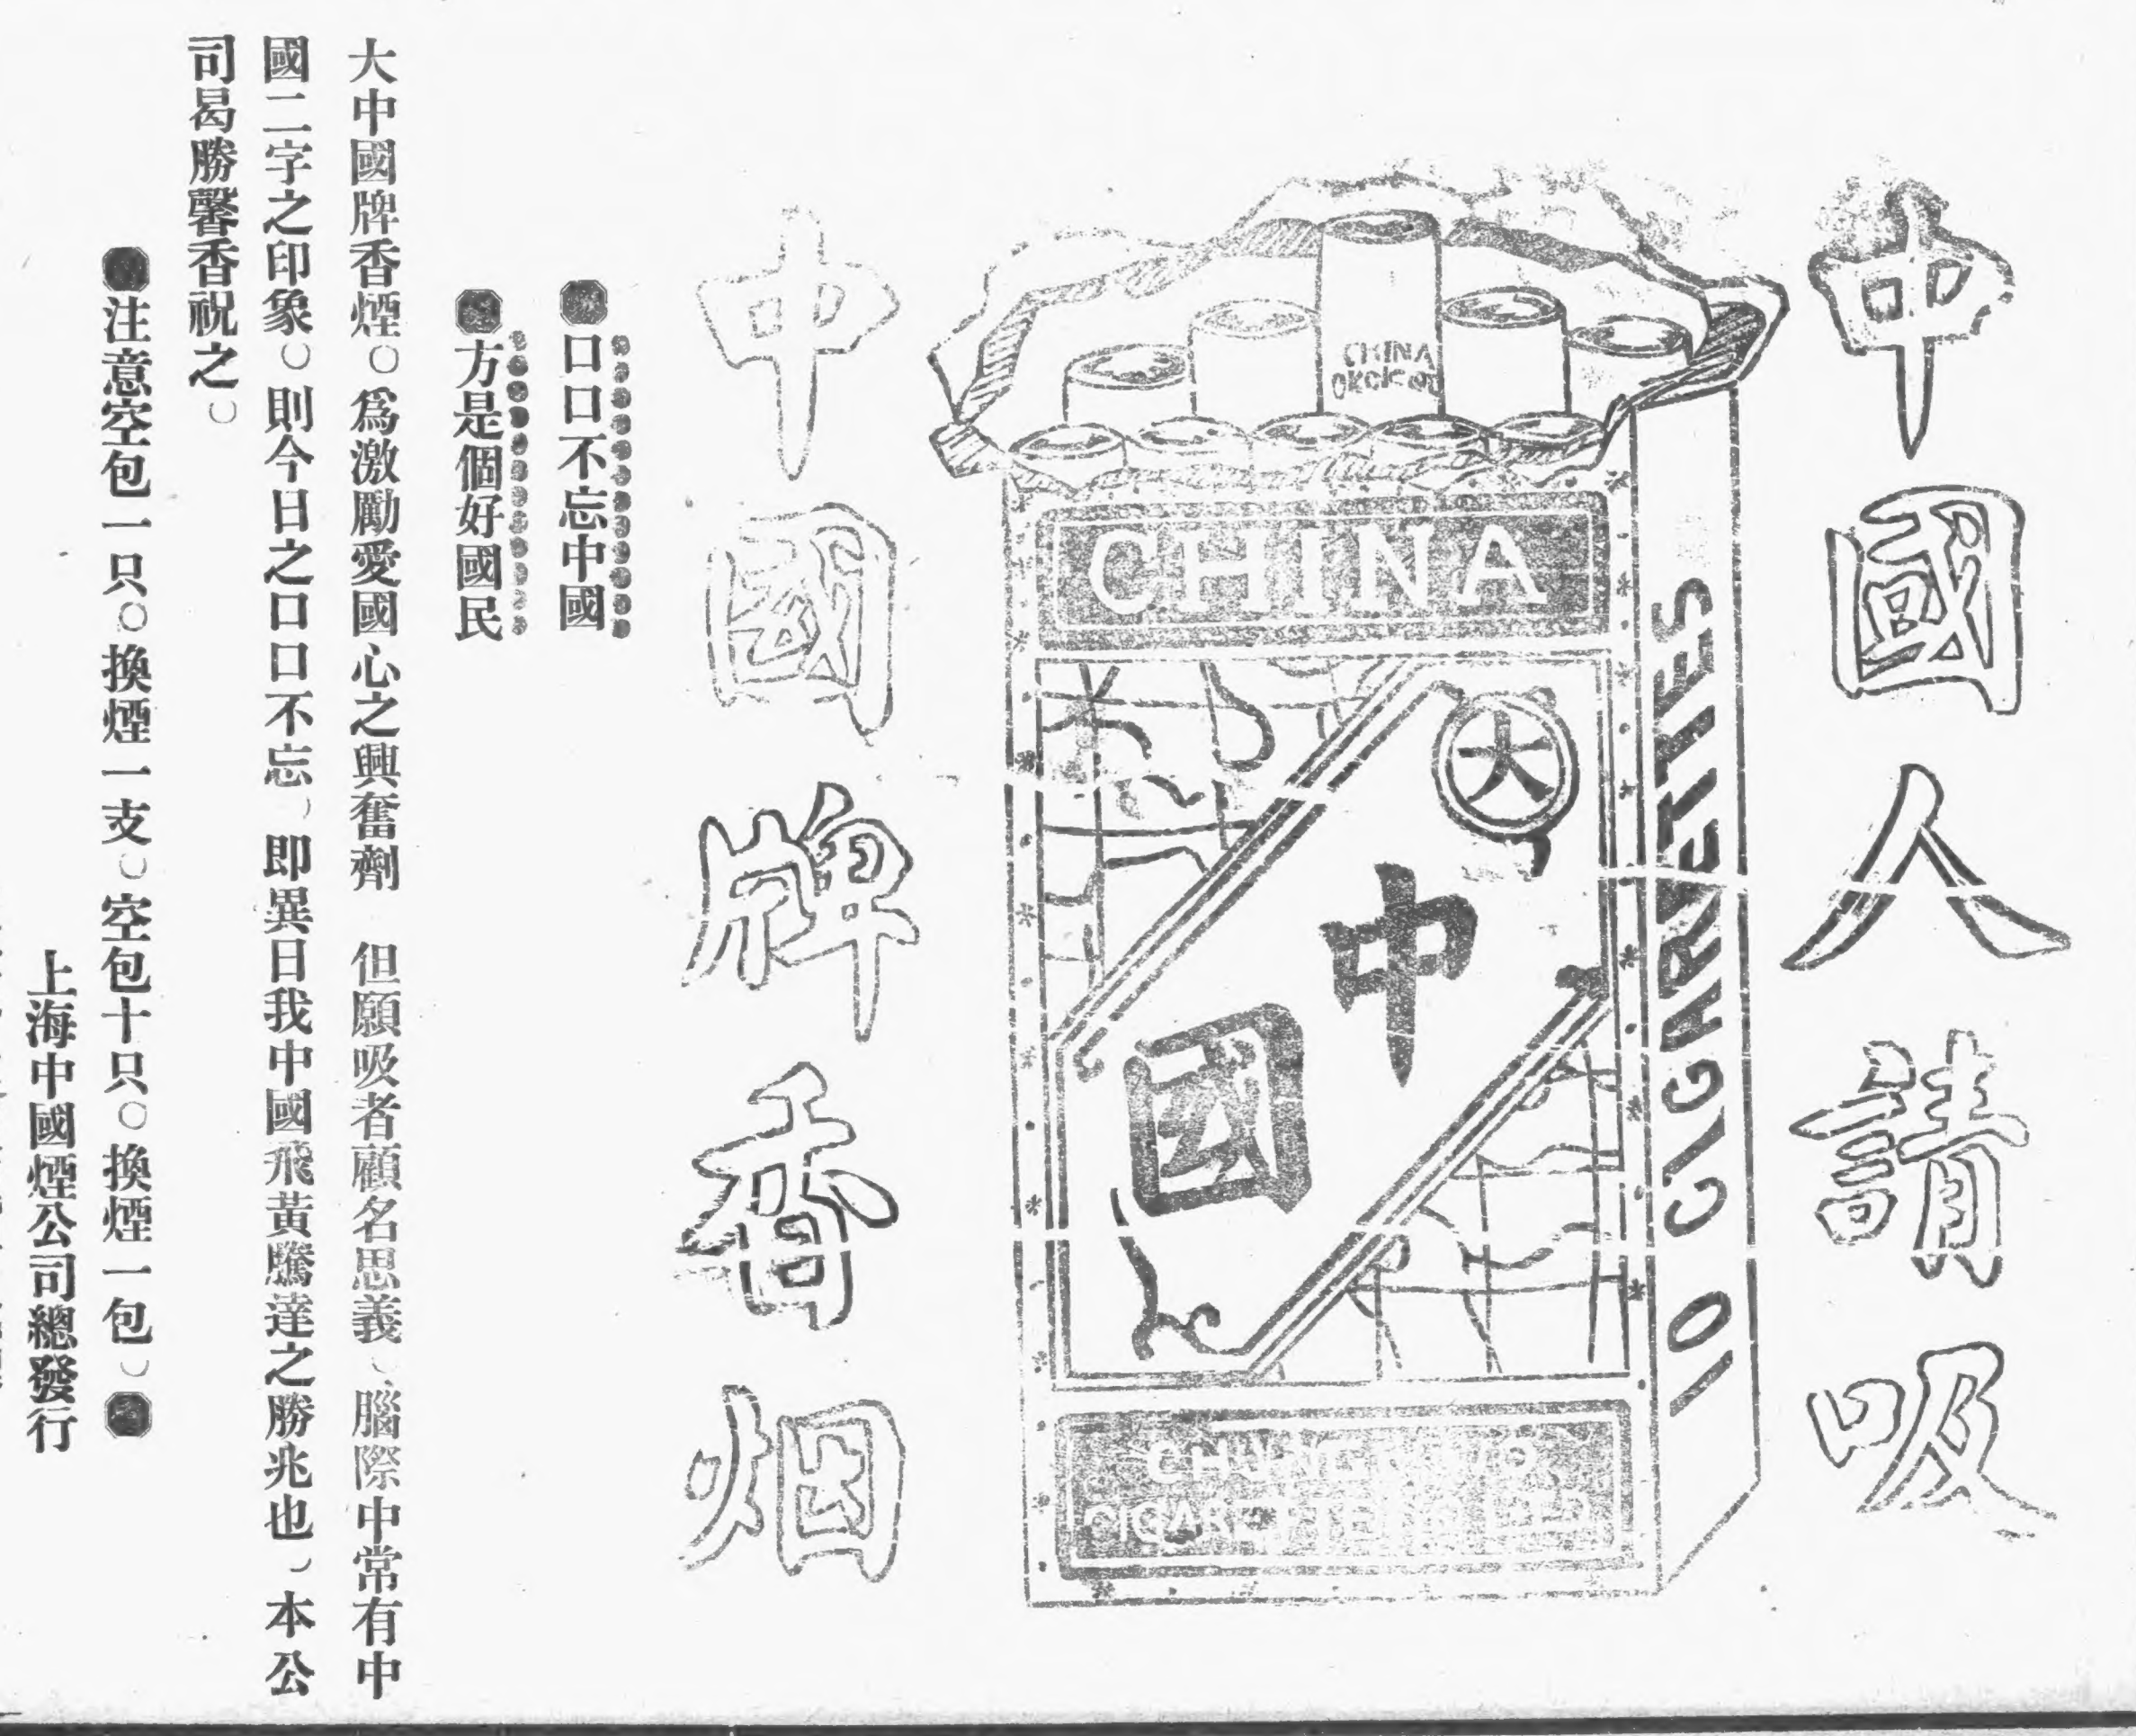 中國人請吸
CHINA
CHINA
大
中
國
10 CIGARETTES
CIGARETTE
中國牌香烟
口口不忘中國
方是個好國民
大中國牌香煙。爲激勵愛國心之興奮劑　但願吸者顧名思義、腦際中常有中
國二字之印象。則今日之口口不忘、即異日我中國飛黃騰達之勝兆也、本公
司曷勝馨香祝之。
注意空包一只。換煙一支。空包十只。換煙一包。
上海中國煙公司總發行